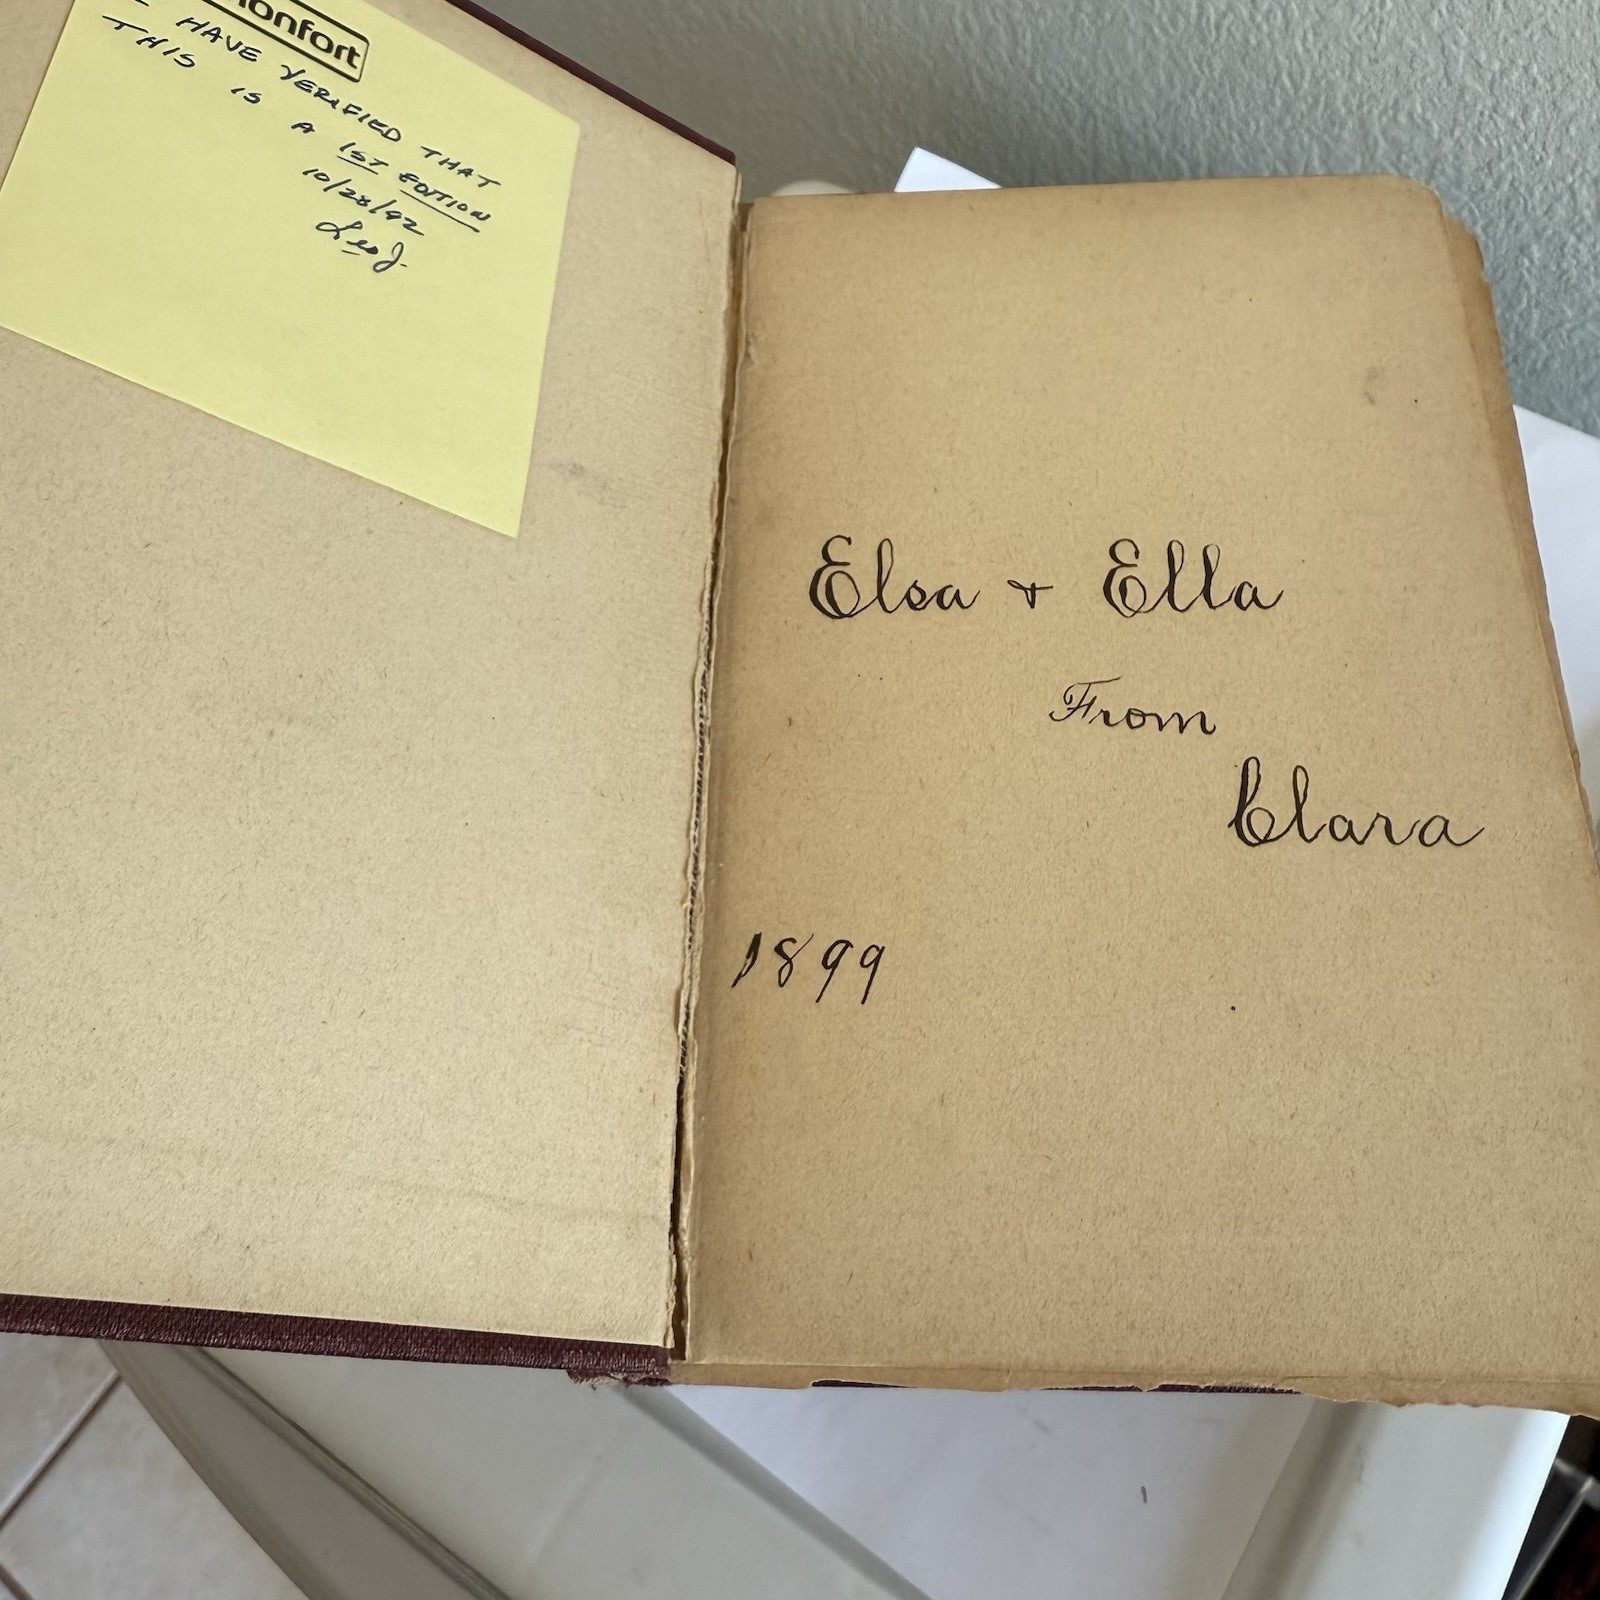 onfort
I HAVE VERIFIED THAT
THIS IS A 1ST EDITION
10/28/92
Leo J.
Elsa + Ella
From
Clara
1899